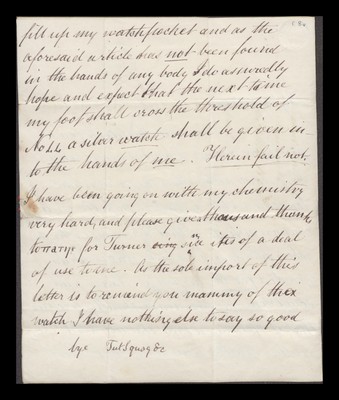 fill up my watchpocket and as the
aforesaid article has not been found
in the hands of any body I do assuredly
hope and expect that the next time
my foot shall cross the threshold of
No 44 a silver watch shall be given in-
to the hands of me. Herein fail not.
I have been going on with my chemistry
very hard, and please give thousand thanks
to Mary for Turner since it is of a deal
of use to me. As the sole import of this
letter is to remind you mammy of the
watch I have nothing else to say so good
bye Tut Squog &c